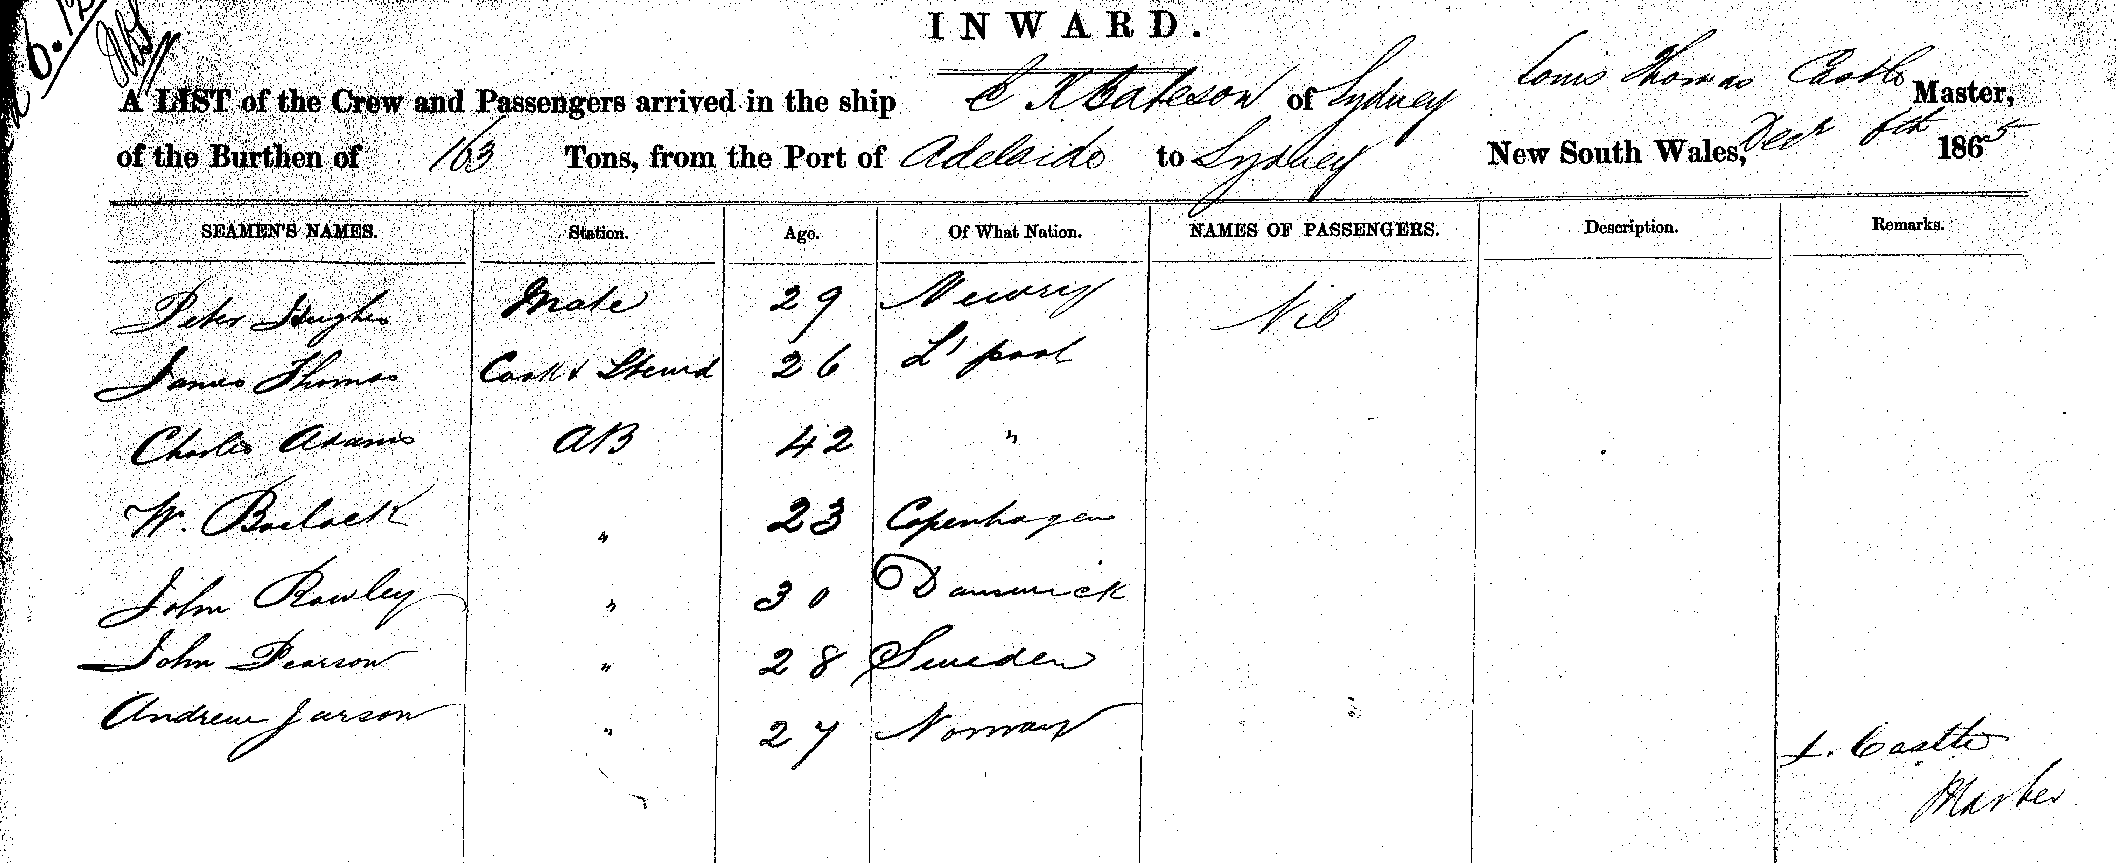 6.12
INWARD.
A LIST of the Crew and Passengers arrived in the ship C K Bateson of Sydney Louis Thomas Castle Master,
of the Burthen of 163 Tons, from the Port of Adelaide to Sydney New South Wales, Decr 6th 1865
SEAMEN'S NAMES. Station. Age. Of What Nation. NAMES OF PASSENGERS. Description. Remarks.
Peter Hughes Mate 29 Newry Nil
James Thomas Cook & Steward 26 L'pool
Charles Adams AB 42 "
W. Boelock " 23 Copenhagen
John Rowley " 30 Danswick
John Pearson " 28 Sweden
Andrew Jarson " 27 Norway
L. Castle
Master